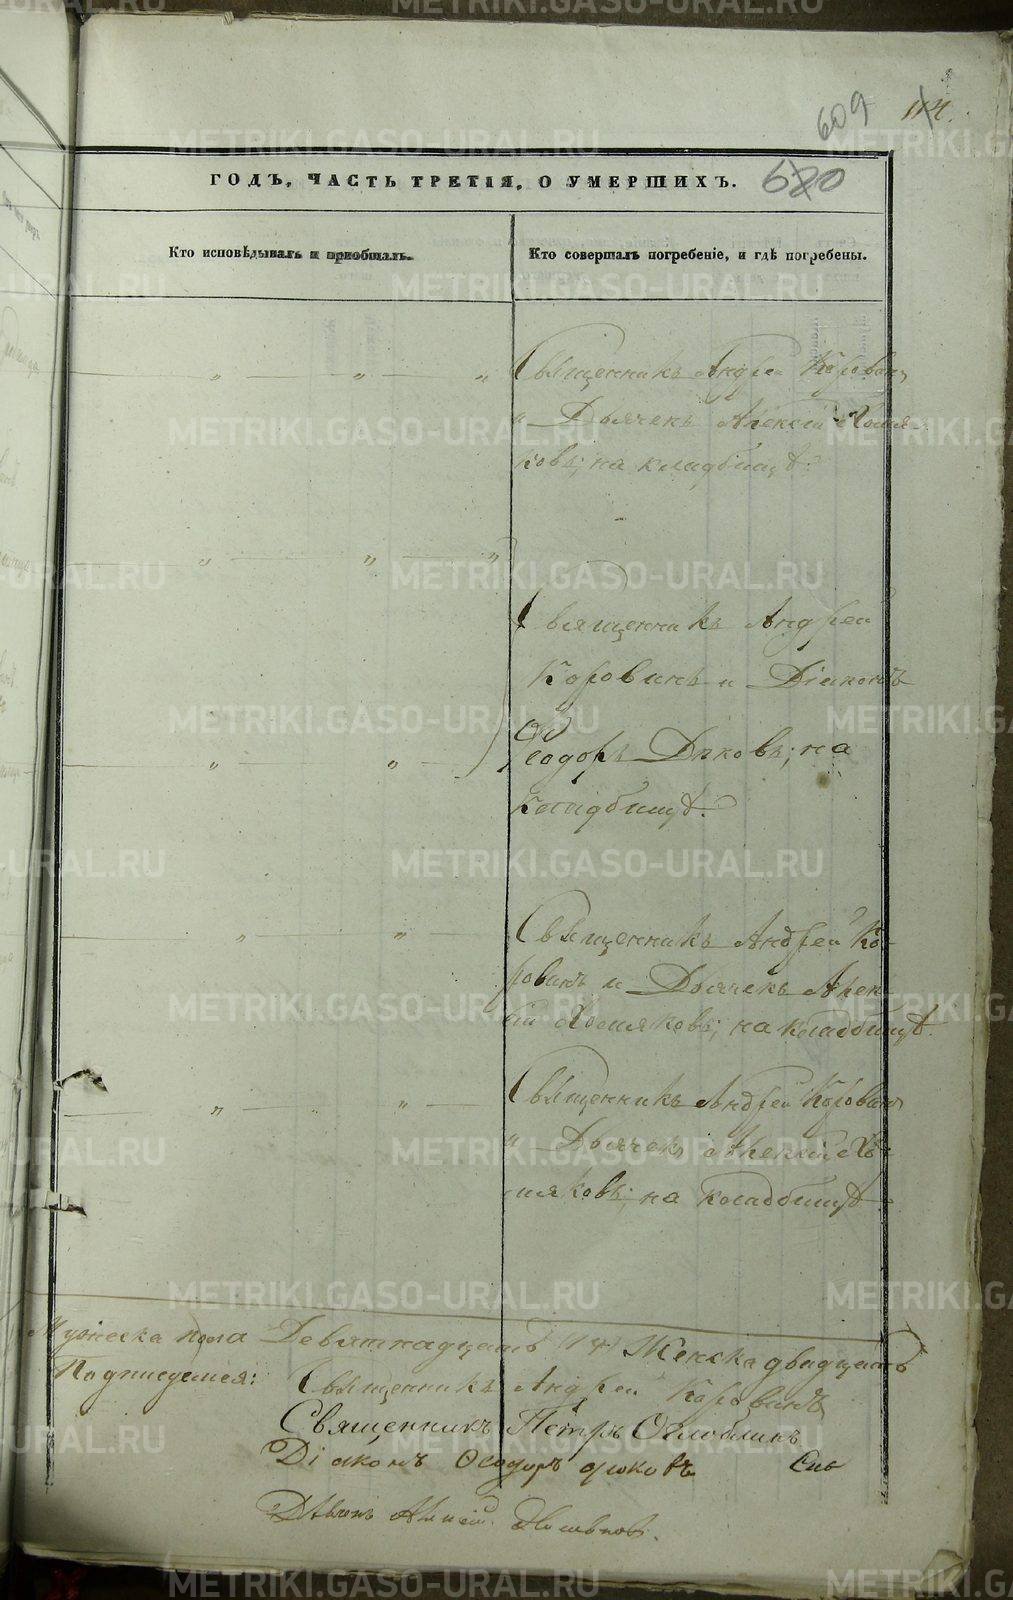 609 114.
ГОДЪ, ЧАСТЬ ТРЕТІЯ, О УМЕРШИХЪ. 680
Кто исповѣдывалъ и пріобщалъ.
Кто совершалъ погребеніе, и гдѣ погребены.
Священникъ Андрей Коровинъ
и Дьячекъ Алексѣй Хомя-
ковъ; на кладбищѣ.
Священникъ Андрей
Коровинъ и Діаконъ
Ѳеодоръ Дьковъ; на
кладбищѣ.
Священникъ Андрей Ко-
ровинъ и Дьячекъ Алек-
сѣй Хомяковъ; на кладбищѣ.
Священникъ Андрей Коровинъ
и Дьячекъ Алексѣй Хо-
мяковъ; на кладбищѣ
Мужеска пола Девятнадцать Женска двадцать
Подписуемся: Священникъ Андрей Коровинъ
Священникъ Петръ Оглоблинъ
Діаконъ Ѳеодоръ
Дьячекъ Алексѣй Хомяковъ.
METRIKI.GASO-URAL.RU